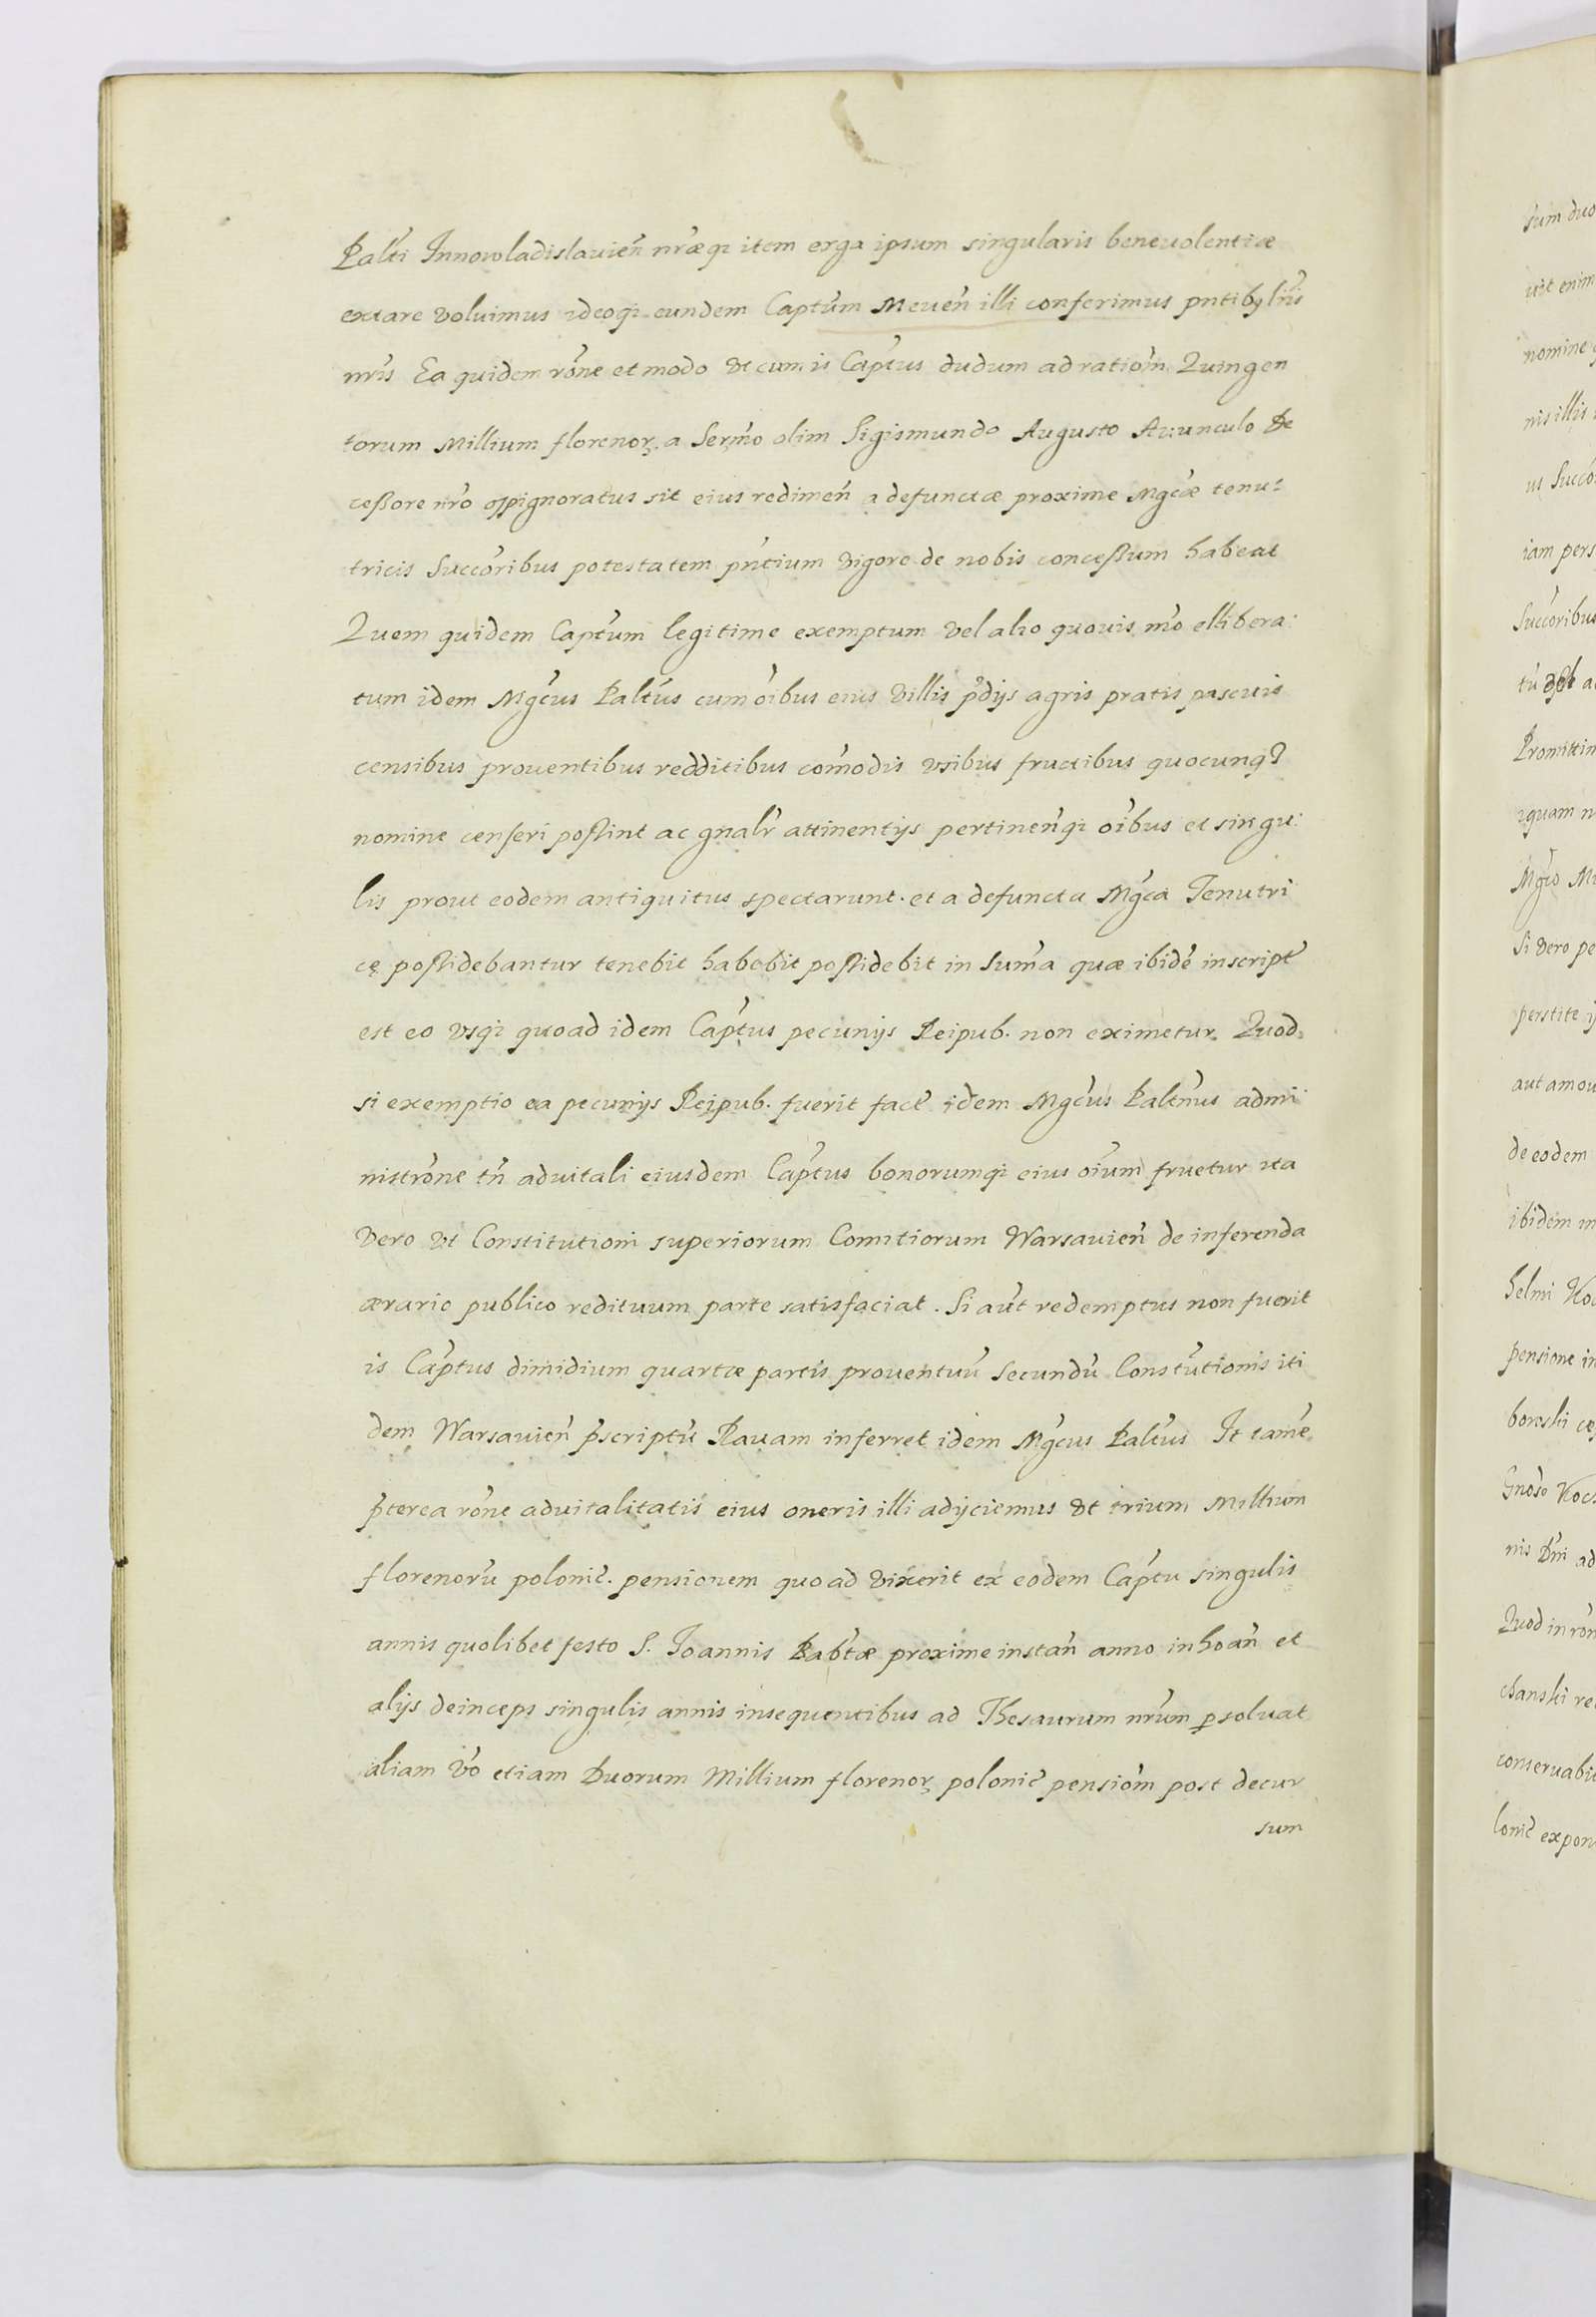 Palti Innowladislavien̄ nr̃æq₃ item erga ipsum singularis benevolentiæ
extare voluimus ideoq₃ eundem Captũm Meven̄ illi conferimus pntibꝫ lrĩs
nrĩs Ea quidem rõne et modo vt cum is Captũs dudum ad ratiõm Quingen
torum Millium florenorꝫ a Serm̃o olim Sigismundo Augusto Auunculo De
ceßore nr̃o oppignoratus sit eius redimen̄ a defunctæ proxime Mgcæ tenu:
tricis Succõribus potestatem pñtium vigore de nobis conceßum habeat
Quem quidem Captũm legitime exemptum vel alio quouis mõ ellibera:
tum idem Mgcũs Paltũs cum oĩbus eius villis p̃dijs agris pratis pascuis
censibus prouentibus redditibus com̃odis vsibus fructibus quocunq₃
nomine censeri poßint ac gnalr̃ attinentijs pertinen̄q₃ oĩbus et singu:
lis prout eodem antiquitus spectarunt. et a defuncta Mgcã Tenutri
cę poßidebantur tenebit habebit poßidebit in Sum̃a quæ ibidẽ inscript̃
est eo vsq₃ quoad idem Captũs pecunijs Reipub. non eximetur. Quod
si exemptio ea pecunijs Reipub. fuerit fact̃ idem Mgcũs Paltñus admi
nistrõne tñ aduitali eiusdem Captũs bonorumq₃ eius oĩum fruetur ita
vero vt Constitutioni superiorum Comitiorum Warsavien̄ de inferenda
ærario publico redituum parte satisfaciat. Si aũt redemptus non fuerit
is Captũs dimidium quartæ partis prouentuũ Secundũ Constũtionis iti
dem Warsavien̄ p̃scriptũ Ravam inferret idem Mgcũs Paltũs It tamẽ
p̃terea rõne aduitalitatis eius oneris illi adijciemus vt trium Millium
florenorũ polonic̃. pensionem quoad vixerit ex eodem Captũ singulis
annis quolibet festo S. Joannis Babtæ̃ proxime instan̄ anno inhoan̄ et
alijs deinceps singulis annis insequentibus ad Thesaurum nrũm ꝑsoluat
aliam võ etiam Duorum Millium florenorꝫ polonic̃ pensiõm post decur
sum